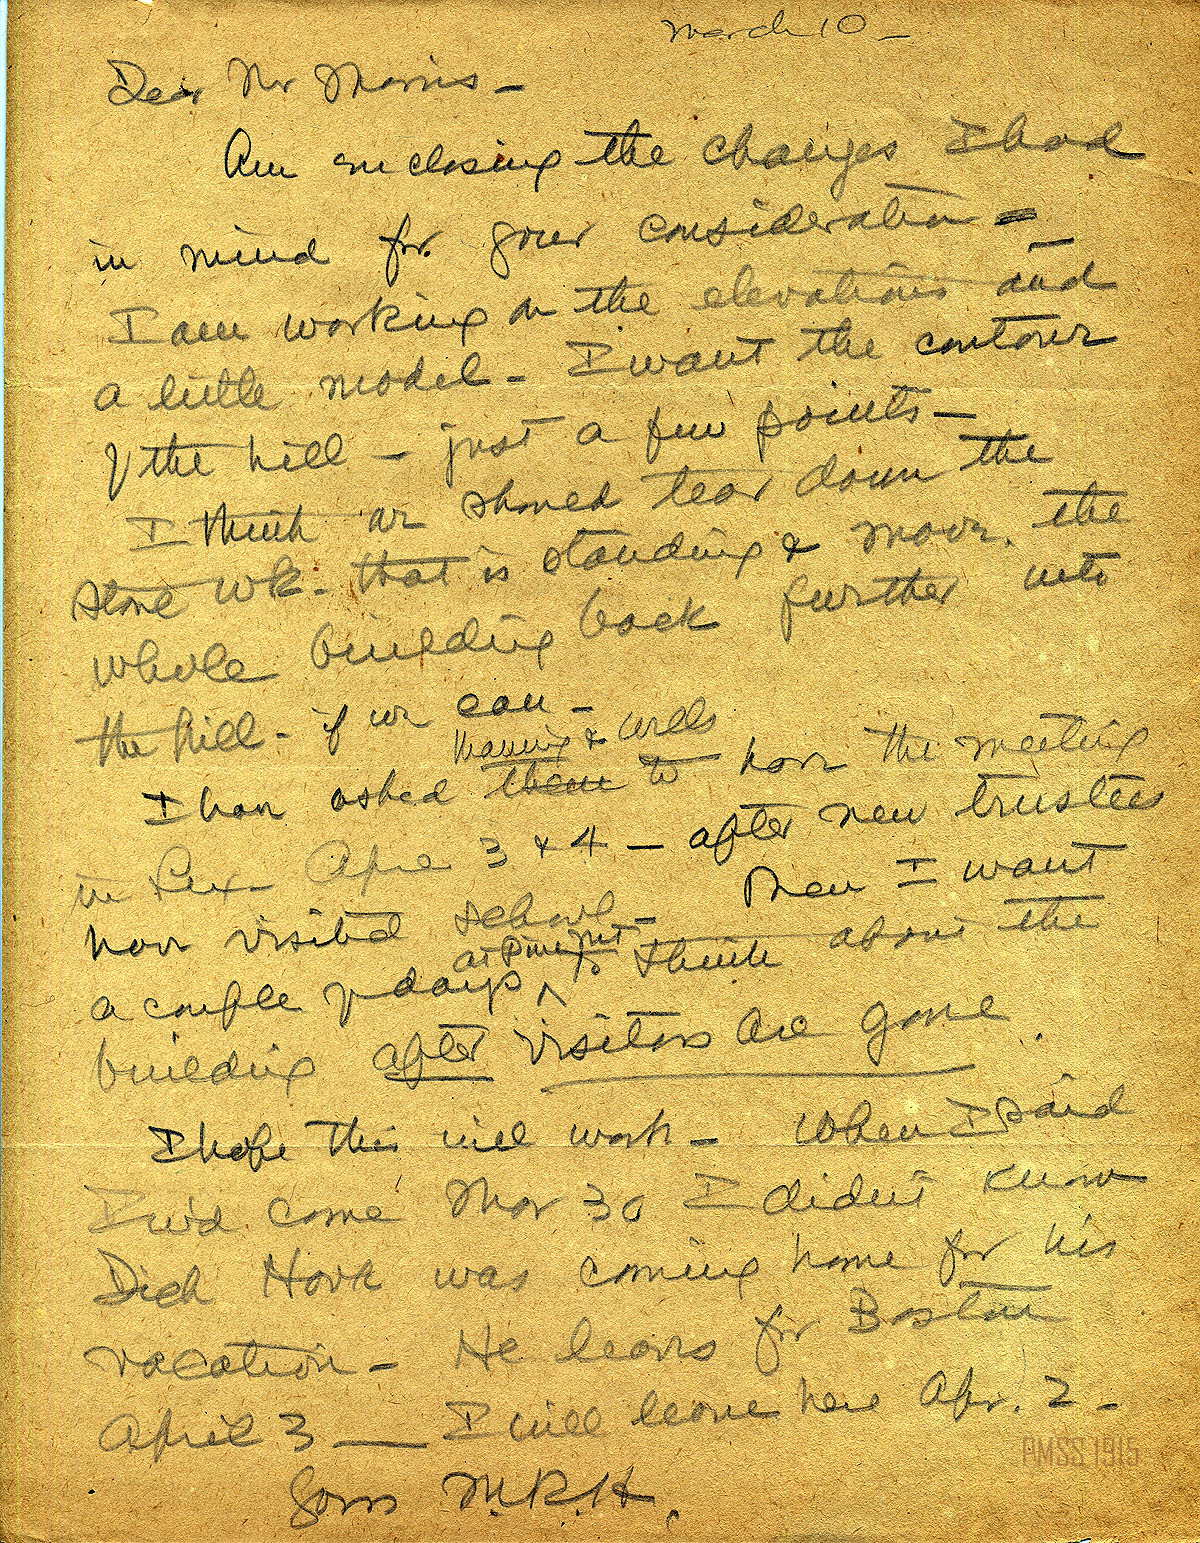 March 10 -
Dear Mr Morris -
Am enclosing the changes I had
in mind for your consideration -
I am working on the elevations and
a little model - I want the contour
of the hill - just a few points -
I think we should tear down the
stone wk. that is standing & move the
whole building back further into
the hill - if we can -
& Wells
I have asked them to have the meeting
in Lex - April 3 & 4 - after new trustees
have visited school - Then I want
at Pine Mt
a couple of days ^ to think about the
building after visitors are gone.
I hope this will work - When I said
I wd come Mar 30 I didn't know
Dick Hook was coming home for his
vacation - He leaves for Boston
April 3 — I will leave here Apr. 2 -
Yours M.R.H.
PMSS 1915